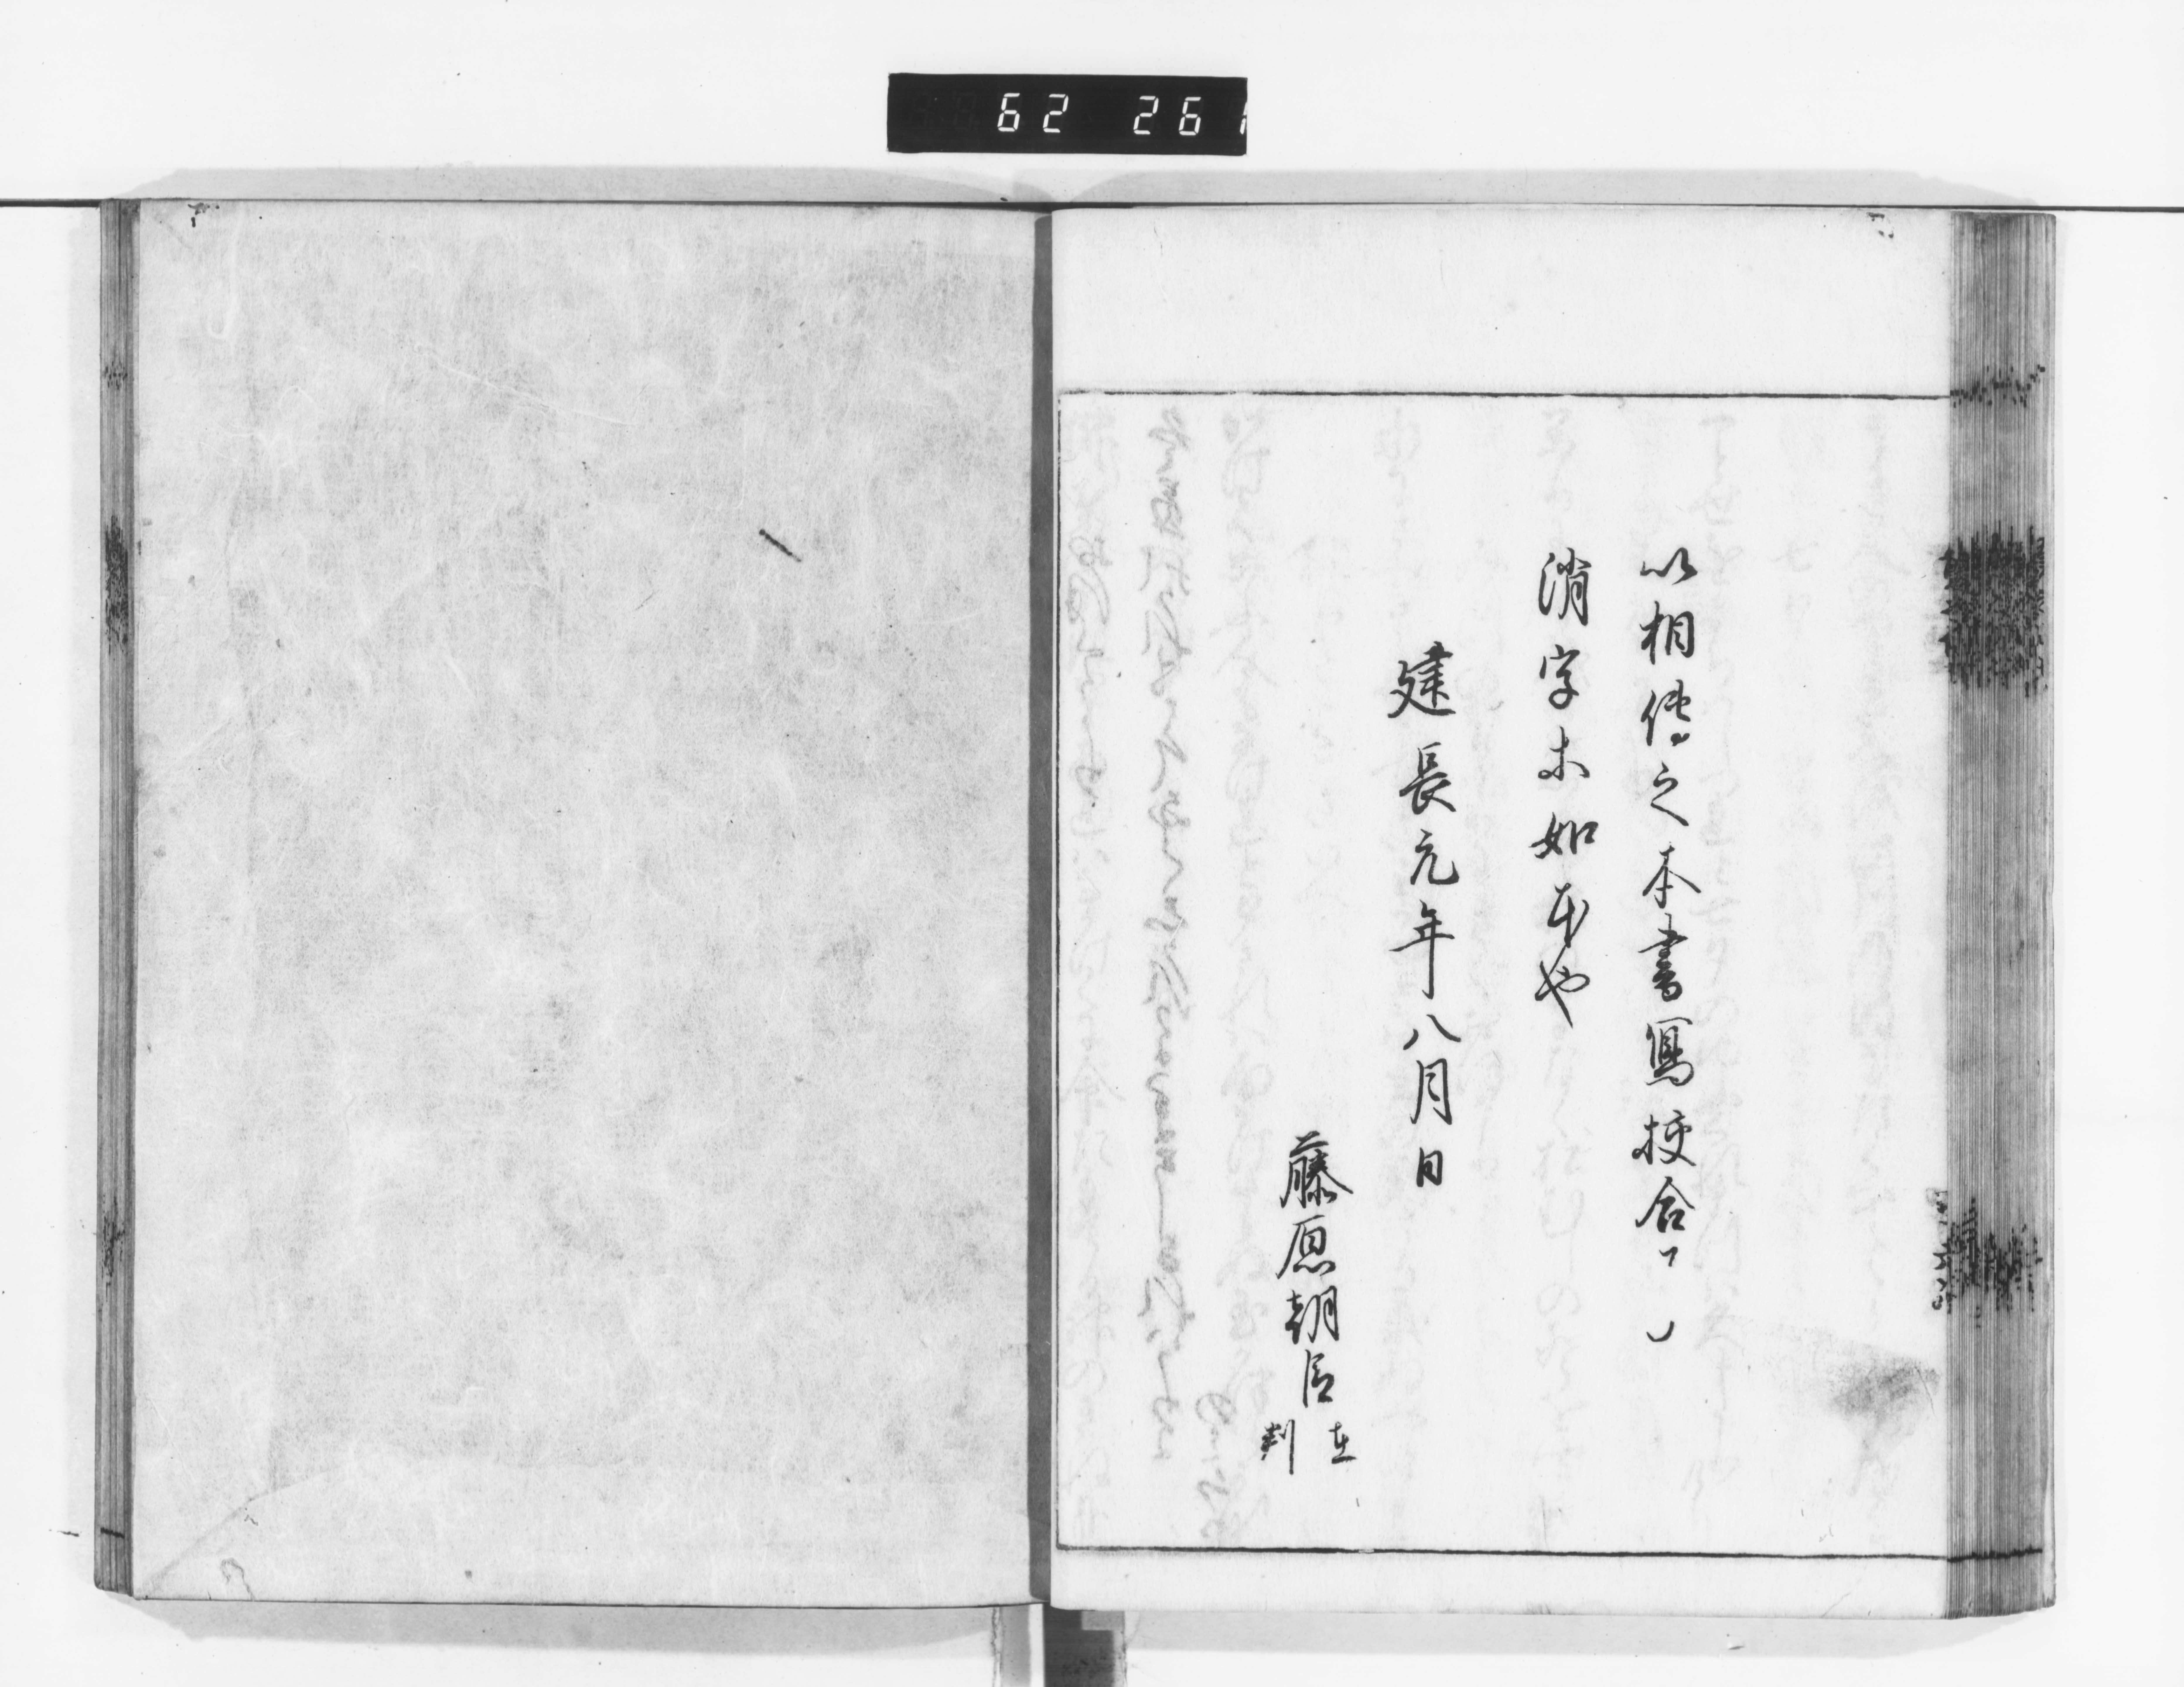 62 261
以相傳之本書寫挍合了
消字ホ如本也
建長元年八月日
藤原朝臣在判